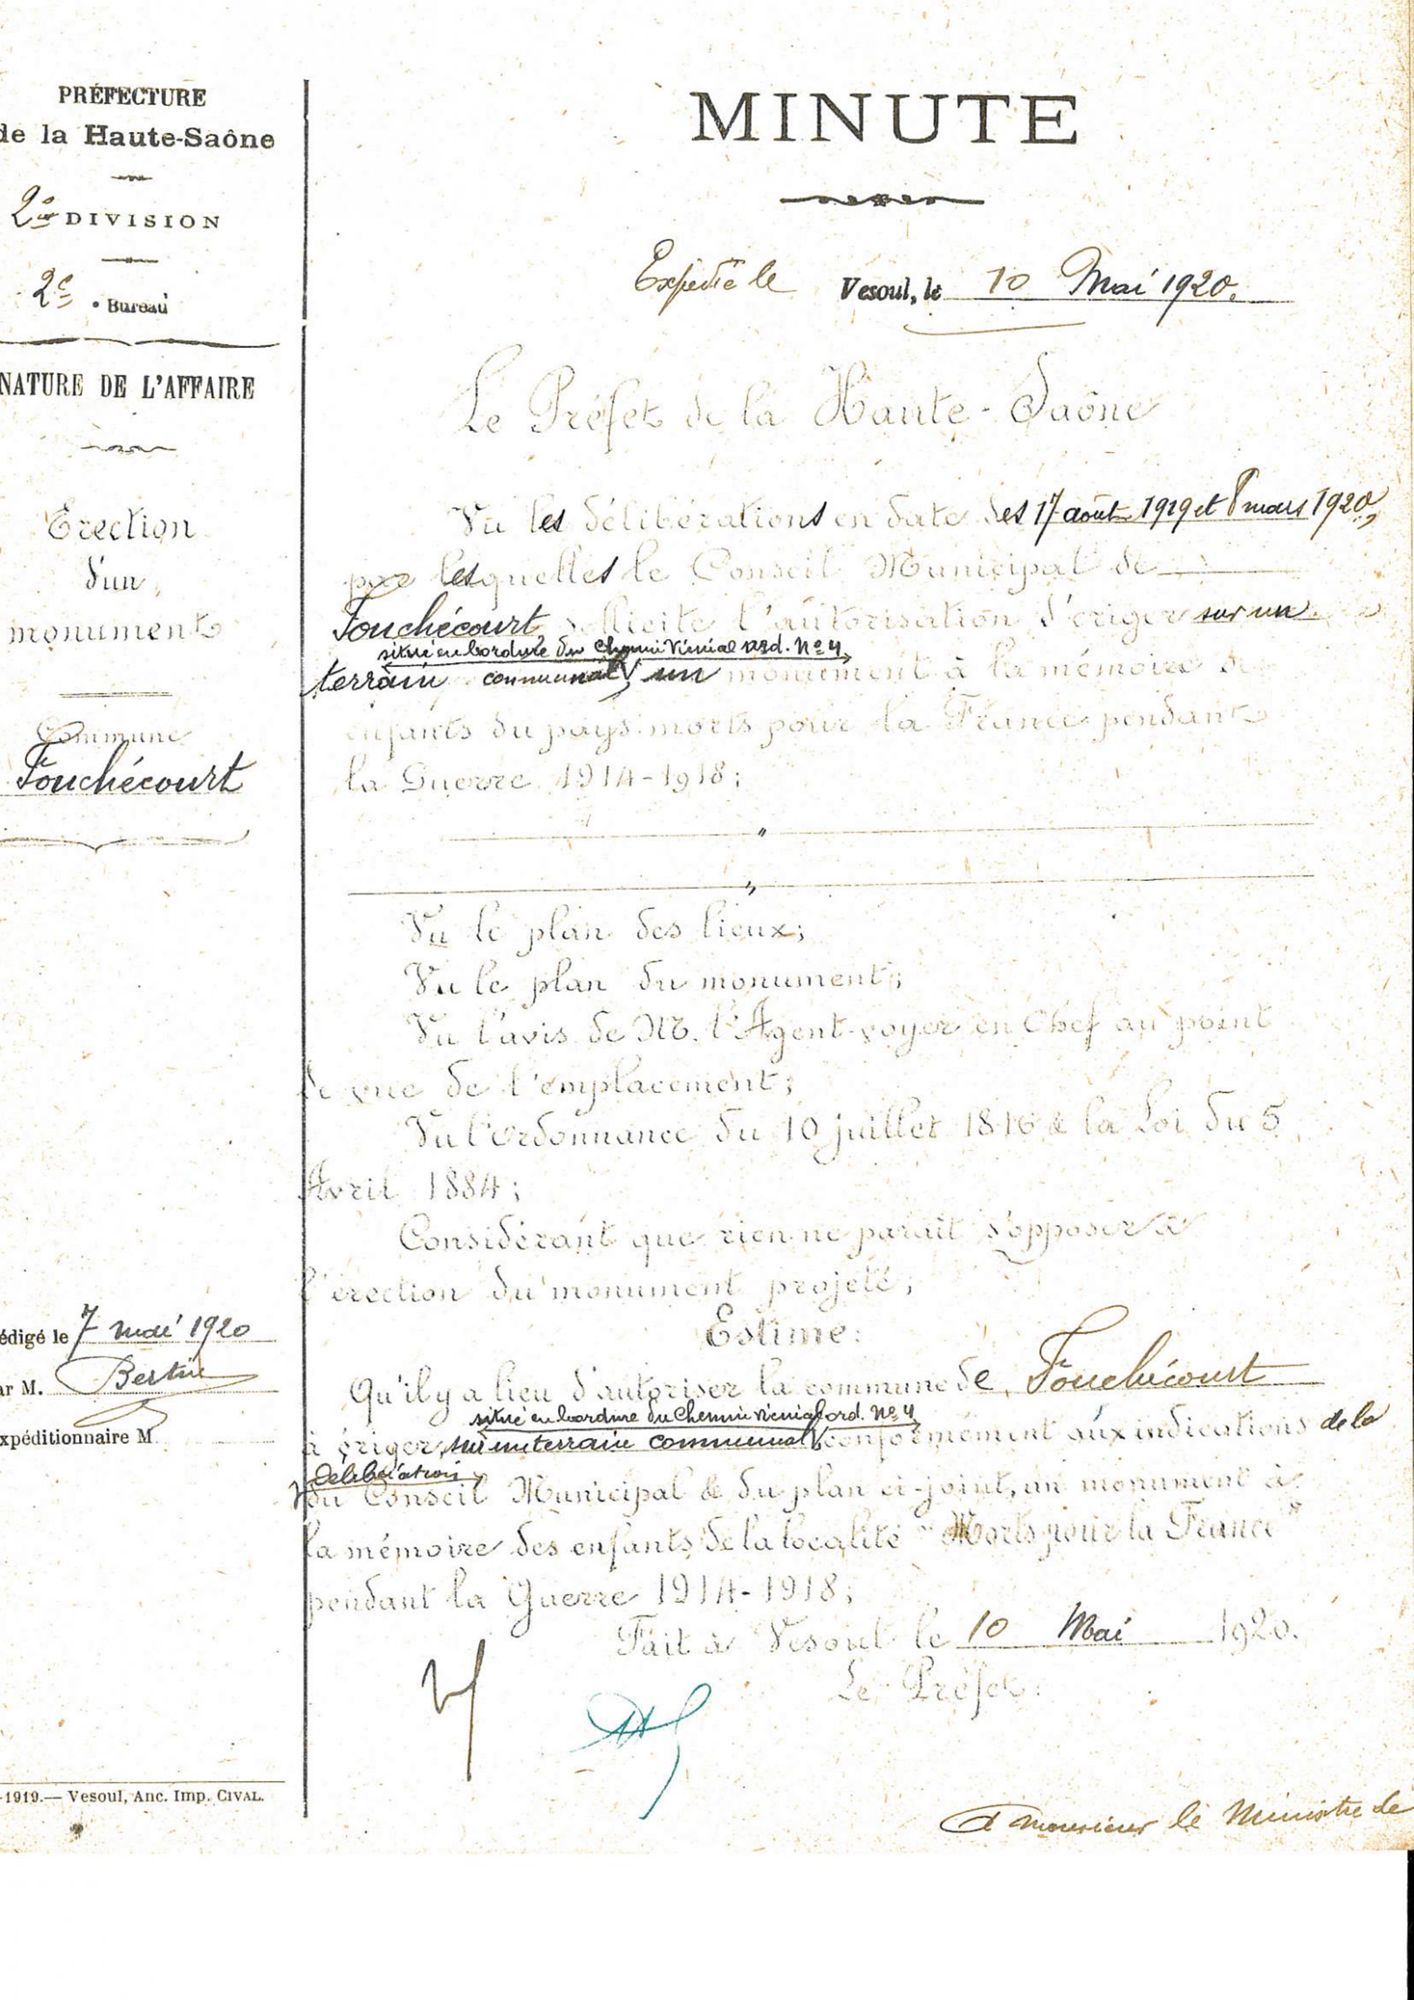 PRÉFECTURE
de la Haute-Saône
2e DIVISION
2e Bureau
NATURE DE L'AFFAIRE
Erection
d'un
monument
Commune
Fouchécourt
édigé le 7 mai 1920
ar M.
xpéditionnaire M
-1919.— Vesoul, Anc. Imp. CIVAL.
MINUTE
Expédié le Vesoul, le 10 Mai 1920.
Le Préfet de la Haute-Saône
Vu les délibérations en date des 17 août 1919 et 8 mars 1920,
par lesquelles le Conseil Municipal de
Fouchécourt sollicite l'autorisation d'ériger sur un
situé en bordure du Chemin vicinal ord. No 4
terrain communal, un monument à la mémoire des
enfants du pays morts pour la France pendant
la Guerre 1914-1918;
"
"
Vu le plan des lieux;
Vu le plan du monument;
Vu l'avis de M. l'Agent-voyer en Chef au point
de vue de l'emplacement;
Vu l'ordonnance du 10 juillet 1816 & la Loi du 5
Avril 1884;
Considérant que rien ne parait s'opposer à
l'érection du monument projeté;
Estime:
Qu'il y a lieu d'autoriser la commune de Fouchécourt
situé en bordure du Chemin vicinal ord. No 4
à ériger, sur un terrain communal conformément aux indications de la
délibération
du Conseil Municipal & du plan ci-joint, un monument à
la mémoire des enfants de la localité "Morts pour la France"
pendant la Guerre 1914-1918;
Fait à Vesoul le 10 Mai 1920.
Le Préfet:
A monsieur le Ministre de